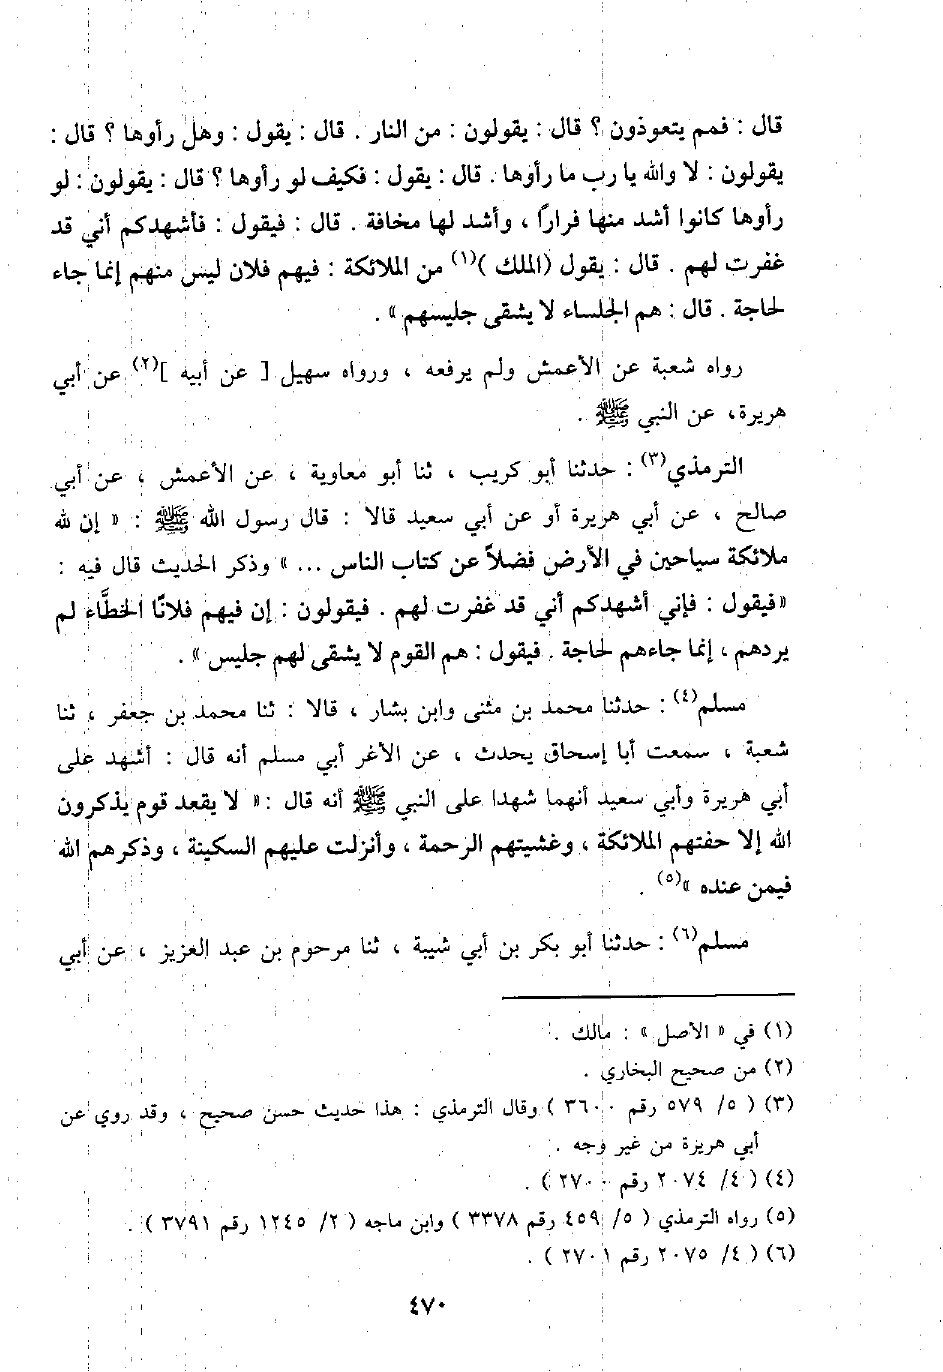 قال : فمم يتعوذون ؟ قال : يقولون : من النار . قال : يقول : وهل رأوها ؟ قال :
يقولون : لا والله يا رب ما رأوها . قال : يقول : فكيف لو رأوها ؟ قال : يقولون : لو
رأوها كانوا أشد منها فرارًا ، وأشد لها مخافة . قال : فيقول : فأشهدكم أني قد
غفرت لهم . قال : يقول (الملك )(١) من الملائكة : فيهم فلان ليس منهم إنما جاء
لحاجة . قال : هم الجلساء لا يشقى جليسهم » .
رواه شعبة عن الأعمش ولم يرفعه ، ورواه سهيل [ عن أبيه ](٢) عن أبي
هريرة، عن النبي ﷺ .
الترمذي(٣) : حدثنا أبو كريب ، ثنا أبو معاوية ، عن الأعمش ، عن أبي
صالح ، عن أبي هريرة أو عن أبي سعيد قالا : قال رسول الله ﷺ : « إن لله
ملائكة سياحين في الأرض فضلاً عن كتاب الناس ... » وذكر الحديث قال فيه :
«فيقول : فإني أشهدكم أني قد غفرت لهم . فيقولون : إن فيهم فلانًا الخطَّاء لم
يردهم ، إنما جاءهم لحاجة . فيقول : هم القوم لا يشقى لهم جليس » .
مسلم(٤) : حدثنا محمد بن مثنى وابن بشار ، قالا : ثنا محمد بن جعفر ، ثنا
شعبة ، سمعت أبا إسحاق يحدث ، عن الأغر أبي مسلم أنه قال : أشهد على
أبي هريرة وأبي سعيد أنهما شهدا على النبي ﷺ أنه قال :« لا يقعد قوم يذكرون
الله إلا حفتهم الملائكة ، وغشيتهم الرحمة ، وأنزلت عليهم السكينة ، وذكرهم الله
فيمن عنده »(٥) .
مسلم(٦) : حدثنا أبو بكر بن أبي شيبة ، ثنا مرحوم بن عبد العزيز ، عن أبي
(١) في « الأصل » : مالك .
(٢) من صحيح البخاري .
(٣) ( ٥/ ٥٧٩ رقم ٣٦٠٠ ) وقال الترمذي : هذا حديث حسن صحيح ، وقد روي عن
أبي هريرة من غير وجه .
(٤) ( ٤/ ٢٠٧٤ رقم ٢٧٠٠ ) .
(٥) رواه الترمذي ( ٥/ ٤٥٩ رقم ٣٣٧٨ ) وابن ماجه ( ٢/ ١٢٤٥ رقم ٣٧٩١ ) .
(٦) ( ٤/ ٢٠٧٥ رقم ٢٧٠١ ) .
٤٧٠